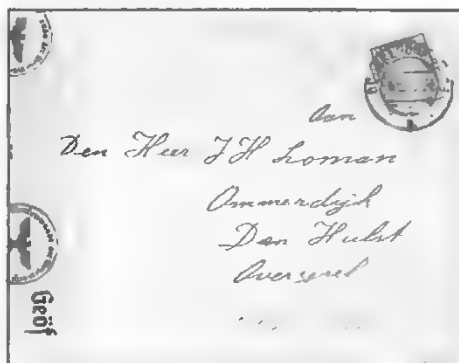 Aan
Den Heer J H Loman
Ommerdijk
Den Hulst
Overijsel
Geöf